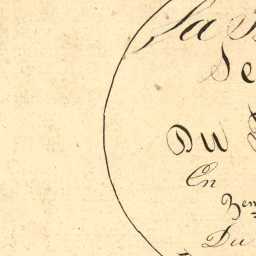 La
Se
Du
En
Zem
Du